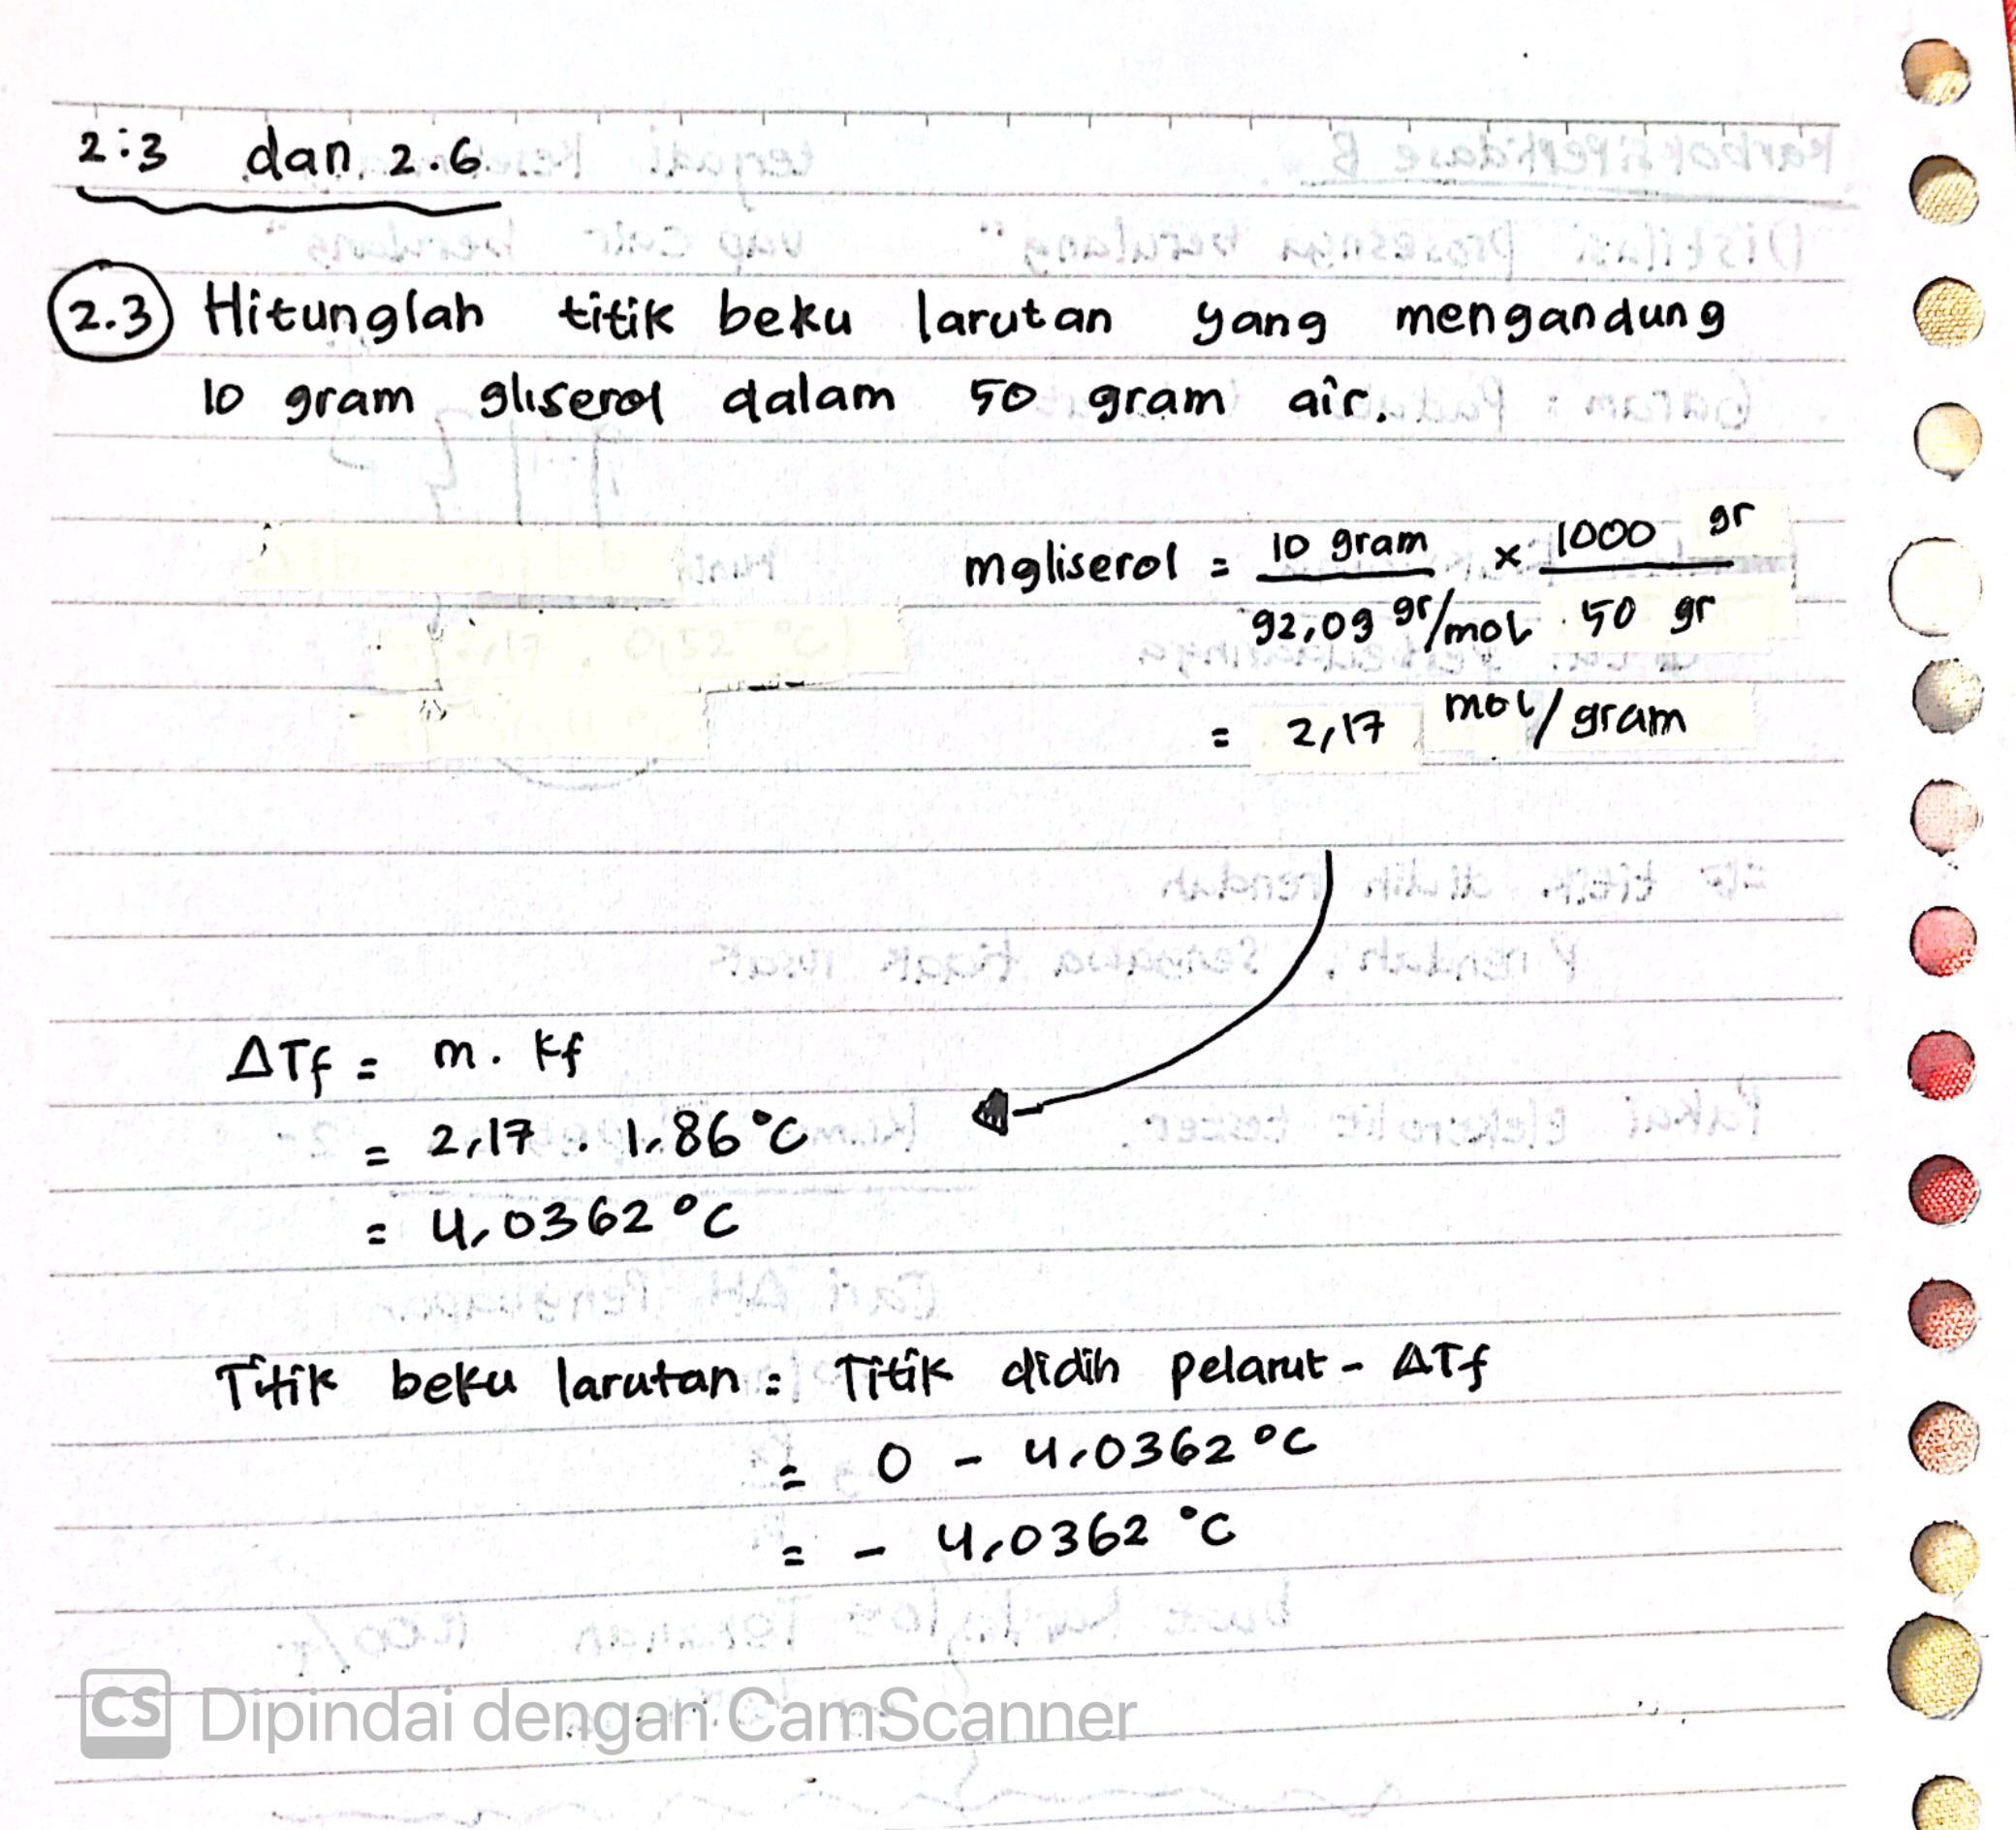 2.3 dan 2.6
2.3 Hitunglah titik beku larutan yang mengandung
10 gram gliserol dalam 50 gram air.
mgliserol = 10 gram / 92,09 gr/mol x 1000 gr / 50 gr
= 2,17 mol/gram
ΔTf = m . kf
= 2,17 . 1,86 °C
= 4,0362 °C
Titik beku larutan = Titik didih pelarut - ΔTf
= 0 - 4,0362 °C
= - 4,0362 °C
CS Dipindai dengan CamScanner